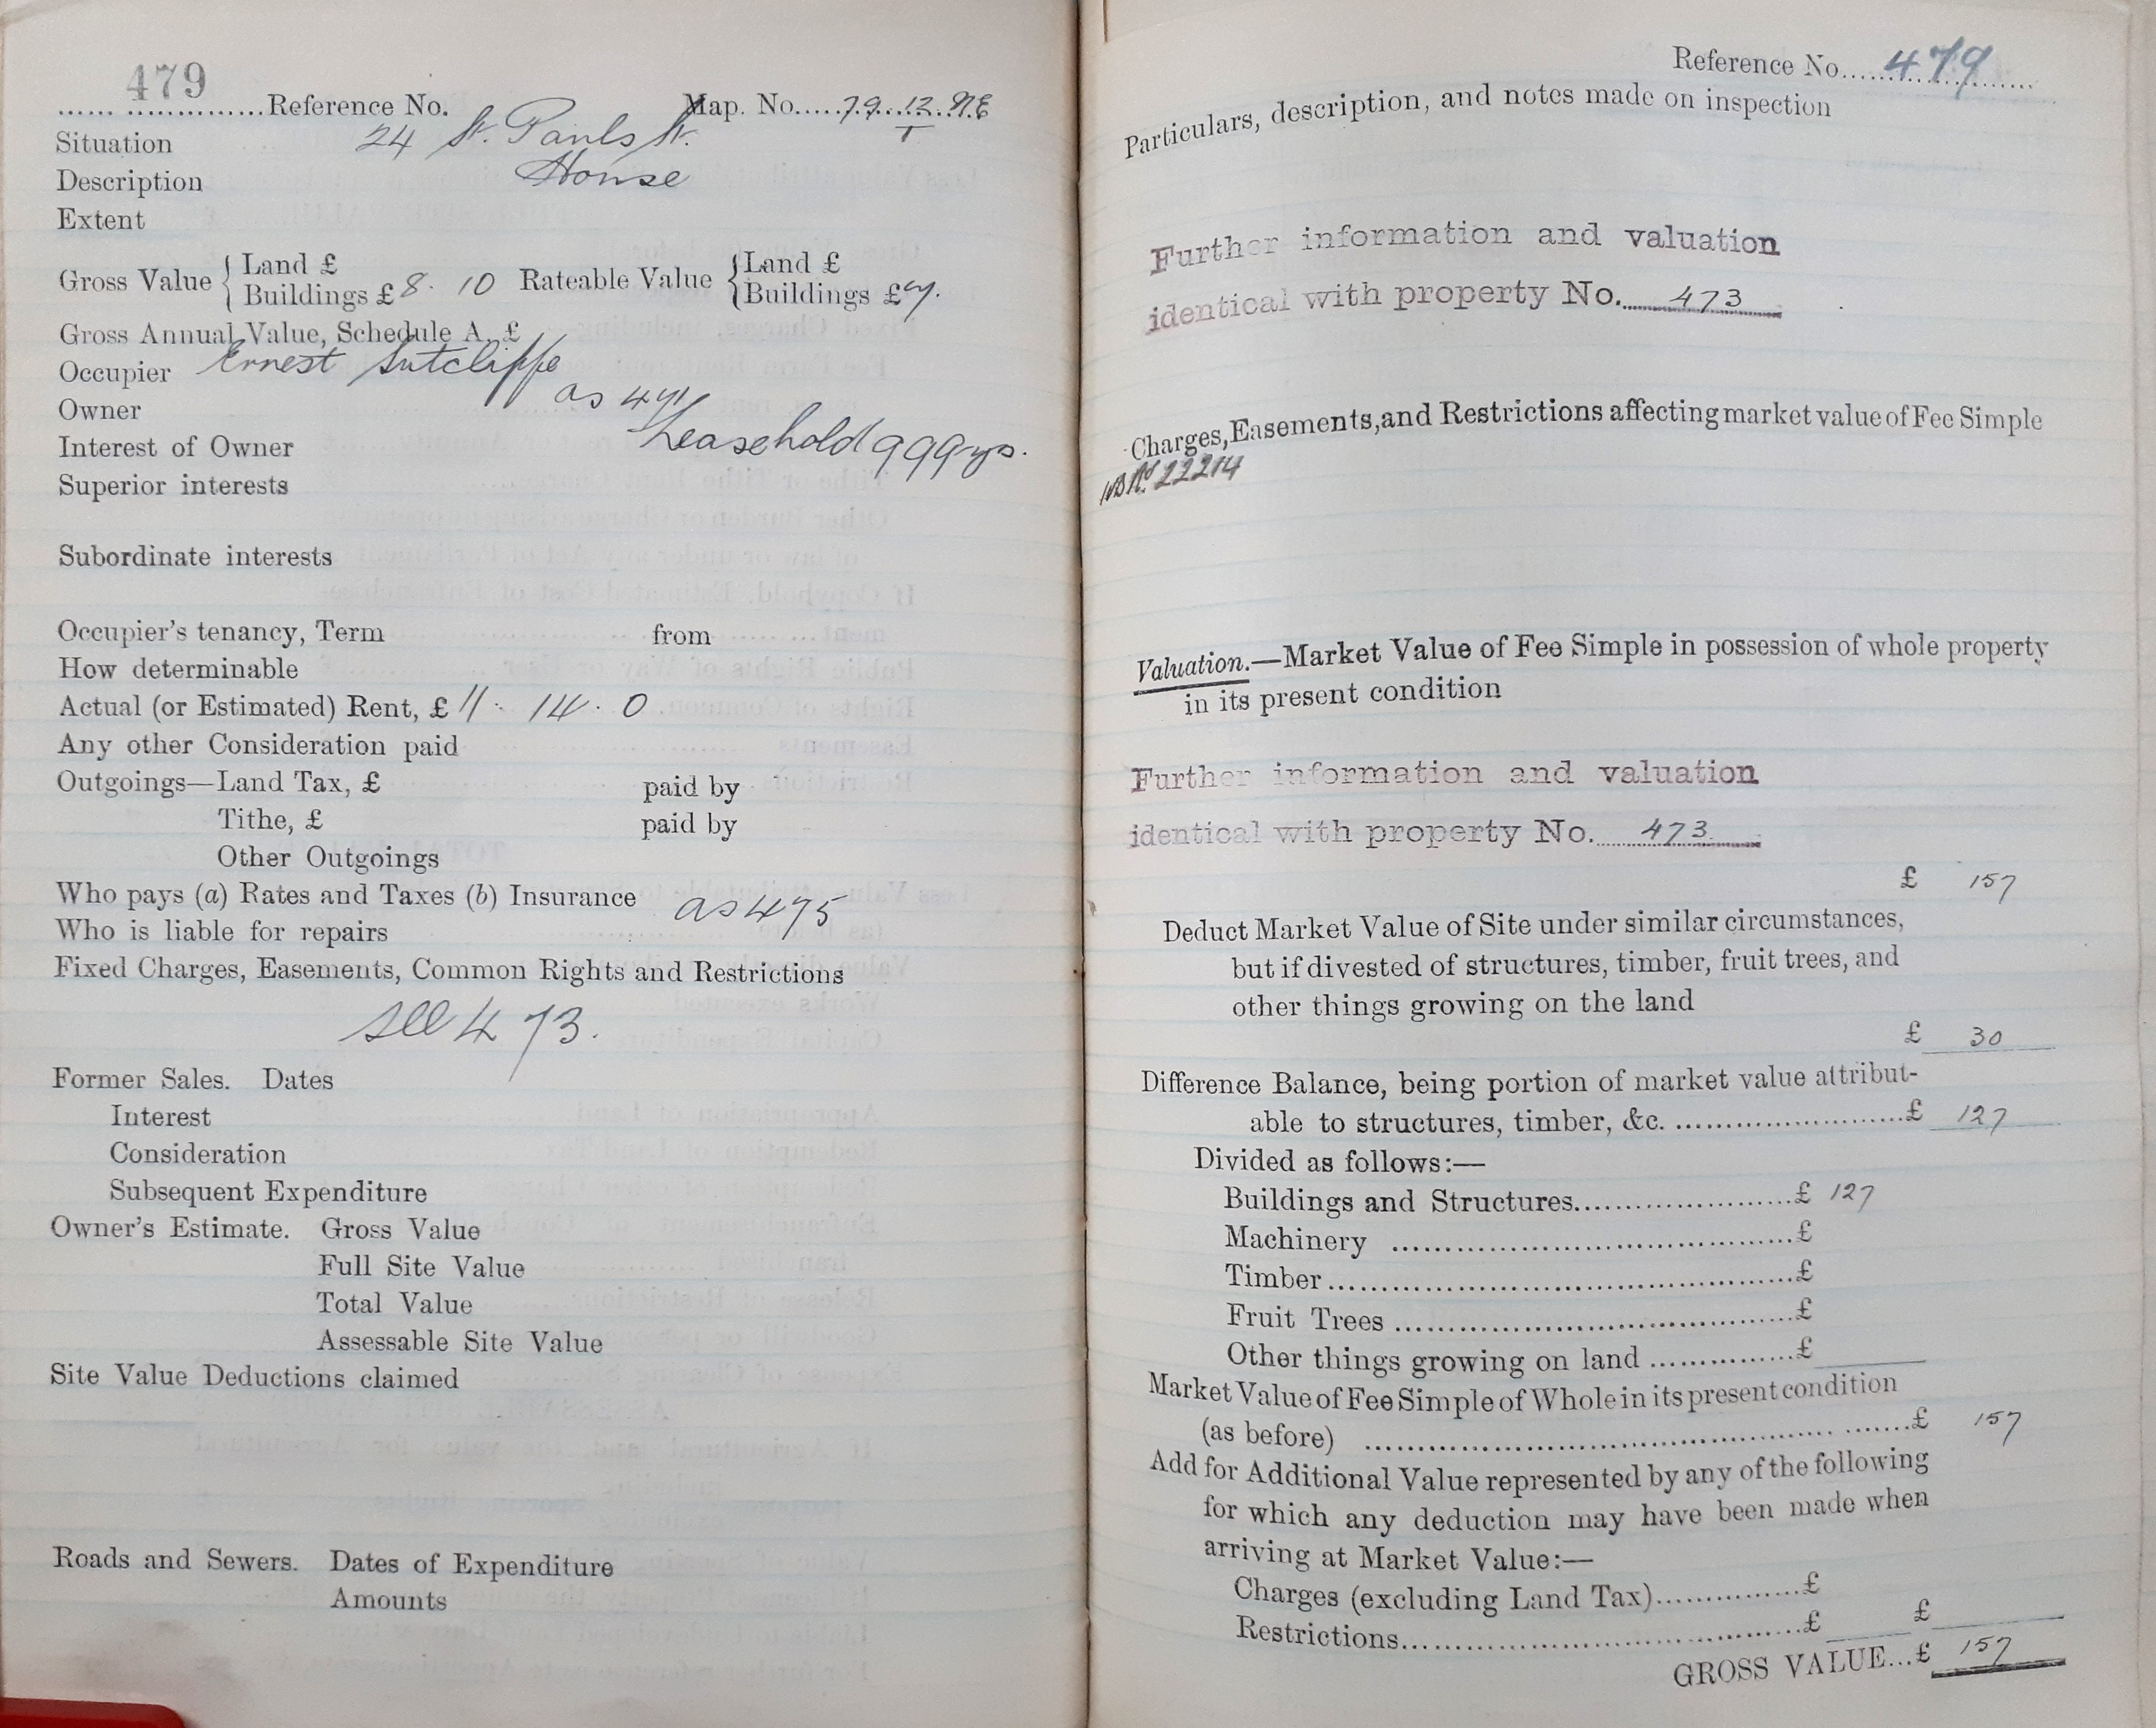 479
.....................Reference No. Map. No. 79. 12. N.E
Situation 24 St. Pauls St.
Description House
Extent
Gross Value { Land £ Rateable Value { Land £
Buildings £ 8. 10 Buildings £ 7.
Gross Annual Value, Schedule A. £
Occupier Ernest Sutcliffe
Owner as 471
Interest of Owner Leasehold 999 yrs.
Superior interests
Subordinate interests
Occupier's tenancy, Term from
How determinable
Actual (or Estimated) Rent, £ 11. 14. 0
Any other Consideration paid
Outgoings—Land Tax, £ paid by
Tithe, £ paid by
Other Outgoings
Who pays (a) Rates and Taxes (b) Insurance as 475
Who is liable for repairs
Fixed Charges, Easements, Common Rights and Restrictions
see 473.
Former Sales. Dates
Interest
Consideration
Subsequent Expenditure
Owner's Estimate. Gross Value
Full Site Value
Total Value
Assessable Site Value
Site Value Deductions claimed
Roads and Sewers. Dates of Expenditure
Amounts
Reference No. 479
Particulars, description, and notes made on inspection
Further information and valuation
identical with property No. 473
Charges, Easements, and Restrictions affecting market value of Fee Simple
22214
Valuation.—Market Value of Fee Simple in possession of whole property
in its present condition
Further information and valuation
identical with property No. 473
£ 157
Deduct Market Value of Site under similar circumstances,
but if divested of structures, timber, fruit trees, and
other things growing on the land
£ 30
Difference Balance, being portion of market value attribut-
able to structures, timber, &c. ........................£ 127
Divided as follows:—
Buildings and Structures......................£ 127
Machinery ........................................£
Timber..............................................£
Fruit Trees ........................................£
Other things growing on land ...............£
Market Value of Fee Simple of Whole in its present condition
(as before) ........................................£ 157
Add for Additional Value represented by any of the following
for which any deduction may have been made when
arriving at Market Value:—
Charges (excluding Land Tax)..............£
Restrictions........................................£ £
GROSS VALUE...£ 157